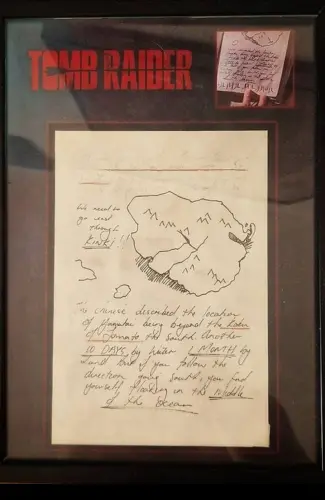 TOMB RAIDER
We need to
go east
through
KINKI!!
The Chinese described the location
of Yamatai being beyond the
of the south. Another
10 DAYS by water 1 MONTH by
land but if you follow the
direction going South, you find
yourself floating in the middle
of the ocean